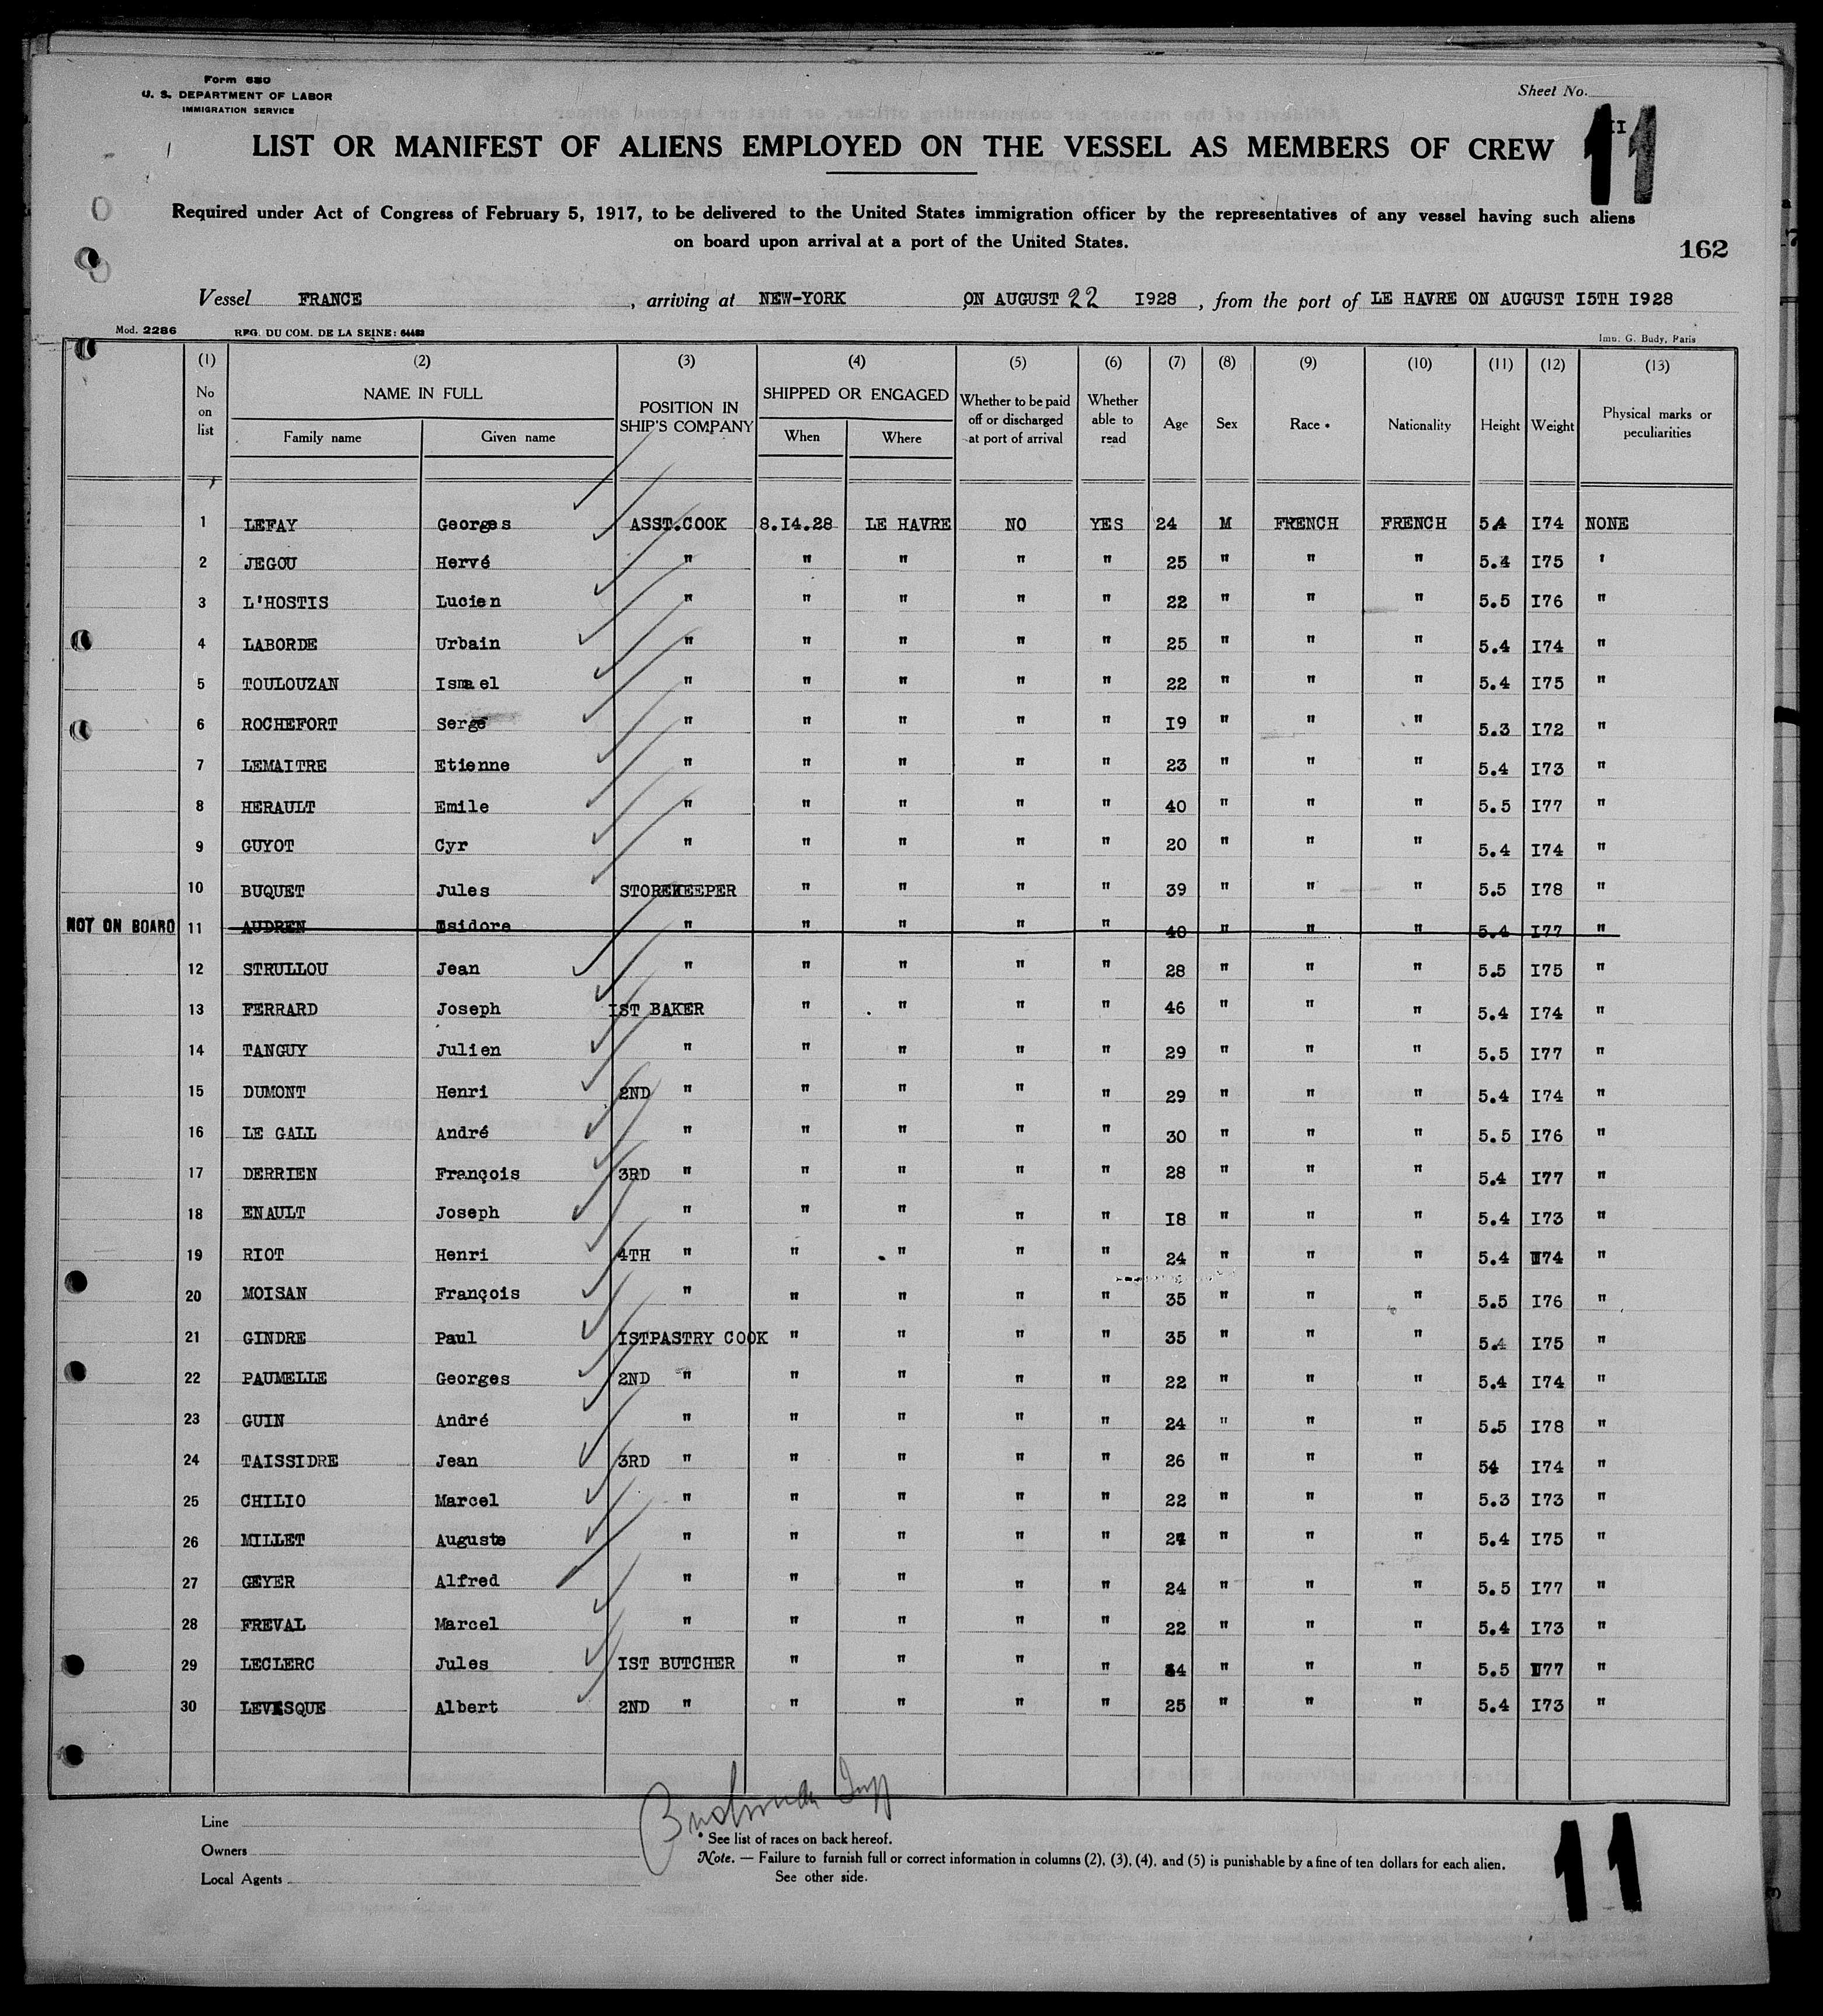 Form 680
U. S. DEPARTMENT OF LABOR
IMMIGRATION SERVICE
Sheet No.
II
11
LIST OR MANIFEST OF ALIENS EMPLOYED ON THE VESSEL AS MEMBERS OF CREW
Required under Act of Congress of February 5, 1917, to be delivered to the United States immigration officer by the representatives of any vessel having such aliens
on board upon arrival at a port of the United States.
162
Vessel FRANCE, arriving at NEW-YORK ON AUGUST 22 1928, from the port of LE HAVRE ON AUGUST 15TH 1928
Mod. 2286 REG. DU COM. DE LA SEINE: 64483 Imp. G. Budy, Paris
(1) (2) (3) (4) (5) (6) (7) (8) (9) (10) (11) (12) (13)
No on list NAME IN FULL POSITION IN SHIP'S COMPANY SHIPPED OR ENGAGED Whether to be paid off or discharged at port of arrival Whether able to read Age Sex Race • Nationality Height Weight Physical marks or peculiarities
Family name Given name When Where
1 LEFAY Georges ASST.COOK 8.I4.28 LE HAVRE NO YES 24 M FRENCH FRENCH 5.4 I74 NONE
2 JEGOU Hervé " " " " " 25 " " " 5.4 I75 '
3 L'HOSTIS Lucien " " " " " 22 " " " 5.5 I76 "
4 LABORDE Urbain " " " " " 25 " " " 5.4 I74 "
5 TOULOUZAN Ismael " " " " " 22 " " " 5.4 I75 "
6 ROCHEFORT Serge " " " " " I9 " " " 5.3 I72 "
7 LEMAITRE Etienne " " " " " 23 " " " 5.4 I73 "
8 HERAULT Emile " " " " " 40 " " " 5.5 I77 "
9 GUYOT Cyr " " " " " 20 " " " 5.4 I74 "
10 BUQUET Jules STOREKEEPER " " " " 39 " " " 5.5 I78 "
NOT ON BOARD 11 AUDREN Isidore " " " " " 40 " " " 5.4 I77 "
12 STRULLOU Jean " " " " " 28 " " " 5.5 I75 "
13 FERRARD Joseph IST BAKER " " " " 46 " " " 5.4 I74 "
14 TANGUY Julien " " " " " 29 " " " 5.5 I77 "
15 DUMONT Henri 2ND " " " " " 29 " " " 5.4 I74 "
16 LE GALL André " " " " " 30 " " " 5.5 I76 "
17 DERRIEN François 3RD " " " " " 28 " " " 5.4 I77 "
18 ENAULT Joseph " " " " " I8 " " " 5.4 I73 "
19 RIOT Henri 4TH " " " " " 24 " " " 5.4 I74 "
20 MOISAN François " " " " " 35 " " " 5.5 I76 "
21 GINDRE Paul ISTPASTRY COOK " " " " 35 " " " 5.4 I75 "
22 PAUMELLE Georges 2ND " " " " " 22 " " " 5.4 I74 "
23 GUIN André " " " " " 24 " " " 5.5 I78 "
24 TAISSIDRE Jean 3RD " " " " " 26 " " " 54 I74 "
25 CHILIO Marcel " " " " " 22 " " " 5.3 I73 "
26 MILLET Auguste " " " " " 24 " " " 5.4 I75 "
27 GEYER Alfred " " " " " 24 " " " 5.5 I77 "
28 FREVAL Marcel " " " " " 22 " " " 5.4 I73 "
29 LECLERC Jules IST BUTCHER " " " " " " " 5.5 I77 "
30 LEVESQUE Albert 2ND " " " " " 25 " " " 5.4 I73 "
Line
Owners
Local Agents
* See list of races on back hereof.
Note. — Failure to furnish full or correct information in columns (2), (3), (4), and (5) is punishable by a fine of ten dollars for each alien.
See other side.
11